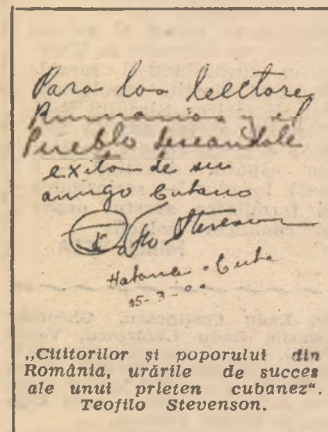 Para los lectores
Rumanos y el
Pueblo deseandole
exitos de su
amigo Cubano
Stevenson
Habana - Cuba
„Cititorilor și poporului din
România, urările de succes
ale unui prieten cubanez“.
Teofilo Stevenson.